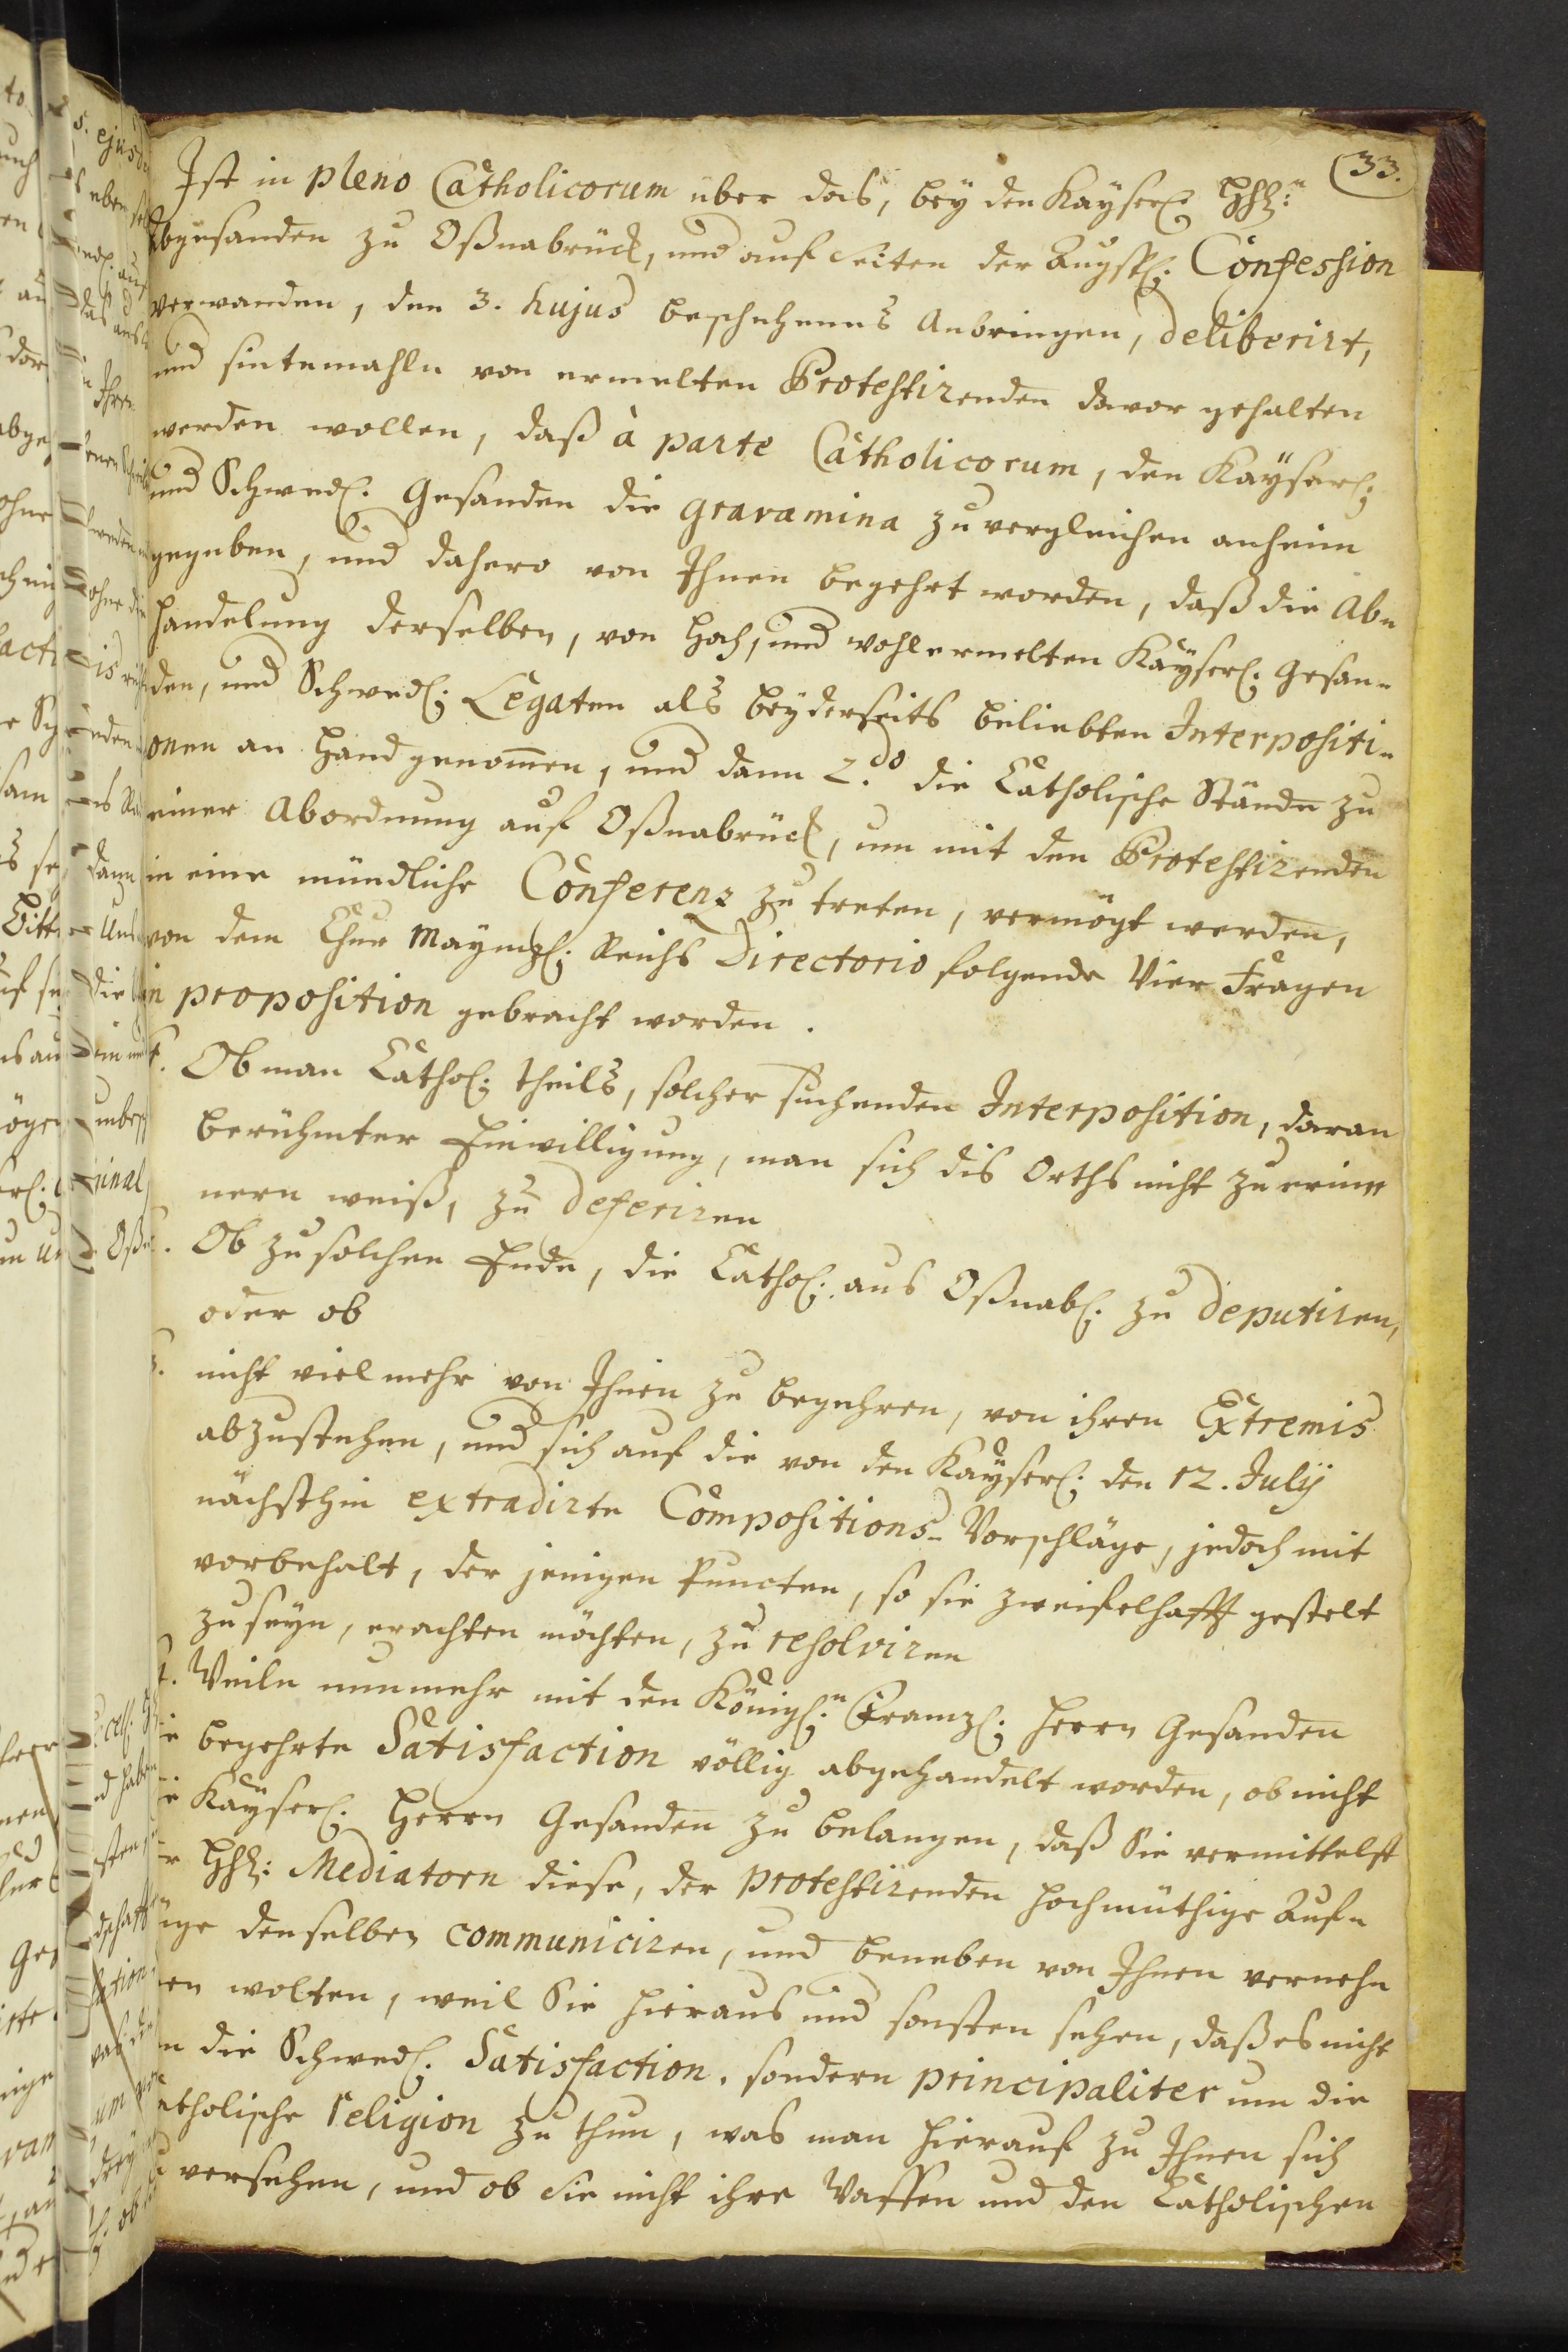 33.
Ist in pleno Catholicorum über das, bey den Kayserl: HhL:n
Abgesanden zu Oßnabrück, und auf seiten der Augsp: Confession
verwanden, den 3. hujus beschehenes Anbringen, deliberirt,
und sintemahln von ermelten Protestirenden davor gehalten
werden wollen, daß à parte Catholicorum, den Kayserl:
und Schwed: Gesanden die gravamina zu vergleichen anheim
gegeben, und dahero von Ihnen begehrt worden, daß die Ab-
handelung derselben, von Hoch, und wohlermelten Kayserl: Gesan-
den, und Schwed: Legaten als beyderseits beliebten Interpositi-
onen an Hand genommen, und dann 2.do die Catholische Stände zu
einer Abordnung auf Oßnabrück, um mit den Protestirenden
in eine mündliche Conferenz zu treten, vermögt werden,
von dem Chur Maynzl: Reichs Directorio folgende Vier Fragen
in proposition gebracht worden.
Ob man Cathol: theils, solcher suchenden Interposition, daran
berühmter Einwilligung, man sich dis Orths nicht zu erin-
nern weiß, zu deferiren
Ob zu solchen Ende, die Cathol: aus Oßnab: zu deputiren,
oder ob
3. nicht vielmehr von Ihnen zu begehren, von ihren Extremis
abzustehen, und sich auf die von den Kayserl: den 12. Julÿ
nächsthin extradirte Compositions-Vorschläge, jedoch mit
vorbehalt, der jenigen Puncten, so sie zweifelhafft gestelt
zu seyn, erachten möchten, zu resolviren
Weiln nunmehr mit den Königl:n Franzl: Herrn Gesanden
begehrte Satisfaction völlig abgehandelt worden, ob nicht
Kayserl: Herrn Gesanden zu belangen, daß Sie vermittelst
HhL: Mediatorn diese, der Protestirenden hochmüthige Auf-
denselben communiciren, und beneben von Ihnen vernehm
wolten, weil Sie hieraus und sonsten sehen, daß es nicht
die Schwed: Satisfaction, sondern principaliter um die
atholische Religion zu thun, was man hierauf zu Ihnen sich
versehen, und ob sie nicht ihre Waffen und den Catholischen